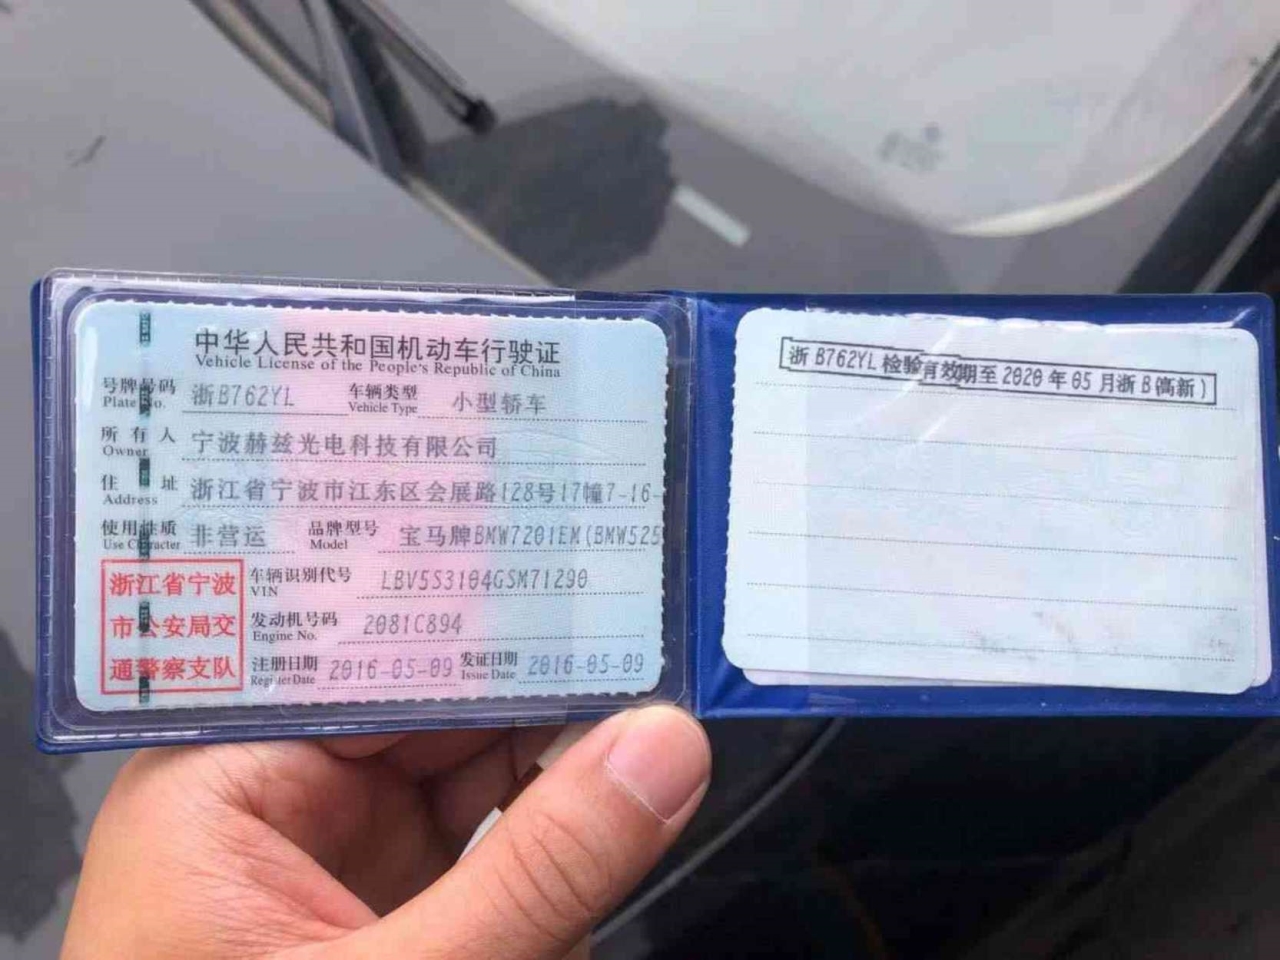 中华人民共和国机动车行驶证
Vehicle License of the People's Republic of China
号牌号码 浙B762YL 车辆类型 小型轿车
Plate No. Vehicle Type
所有人 宁波赫兹光电科技有限公司
Owner
住址 浙江省宁波市江东区会展路128号17幢7-16-
Address
使用性质 非营运 品牌型号 宝马牌BMW7201EM(BMW525
Use Character Model
浙江省宁波
市公安局交
通警察支队
车辆识别代号 LBV5S3104GSM71290
VIN
发动机号码 2081C894
Engine No.
注册日期 2016-05-09 发证日期 2016-05-09
Register Date Issue Date
浙B762YL检验有效期至2020年05月浙B(高新)